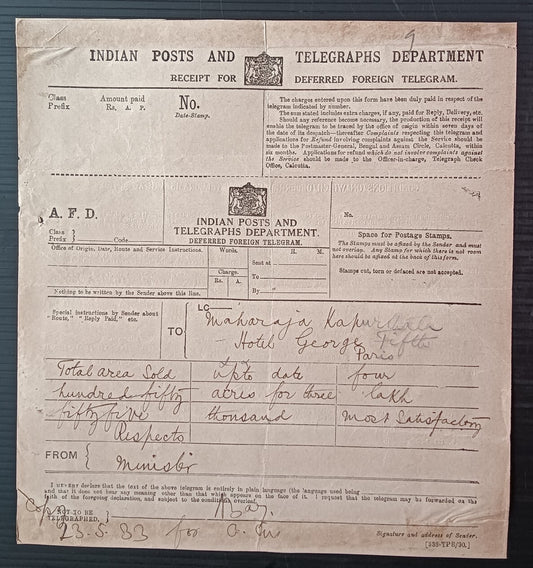 INDIAN POSTS AND TELEGRAPHS DEPARTMENT
RECEIPT FOR DEFERRED FOREIGN TELEGRAM.
Class
Prefix
Amount paid
Rs. A. P.
No.
Date-Stamp.
The charges entered upon this form have been duly paid in respect of the
telegram indicated by number.
The sum stated includes extra charges, if any, paid for Reply, Delivery, etc.
Should any reference become necessary, the production of this receipt will
enable the telegram to be traced by the office of origin within seven days
of the date of its despatch—thereafter Complaints respecting this telegram and
applications for Refund involving complaints against the Service should be
made to the Postmaster-General, Bengal and Assam Circle, Calcutta, within
six months. Applications for refund which do not involve complaints against
the Service should be made to the Officer-in-charge, Telegraph Check
Office, Calcutta.
A. F. D.
INDIAN POSTS AND
TELEGRAPHS DEPARTMENT.
DEFERRED FOREIGN TELEGRAM.
No.
Class
Prefix
Code
Space for Postage Stamps.
The Stamps must be affixed by the Sender and must
not overlap. Any Stamps for which there is not room
here should be affixed at the back of this form.
Stamps cut, torn or defaced are not accepted.
Office of Origin, Date, Route and Service Instructions.
Words.
H. M.
Sent at
Charge.
To
Rs. A.
By
Nothing to be written by the Sender above this line.
Special instructions by Sender about
"Route," "Reply Paid," etc.
TO
LC
Maharaja Kapurthala
Hotel George Fifth
Paris
Total area Sold upto date four
hundred fifty acres for three lakh
fifty five thousand most Satisfactory
Respects
FROM
Minister
I HEREBY declare that the text of the above telegram is entirely in plain language (the language used being
and that it does not bear any meaning other than that which appears on the face of it. I request that the telegram may be forwarded on the
faith of the foregoing declaration, and subject to the conditions
NOT TO BE
TELEGRAPHED.
Copy
23.5.33 for
Signature and address of Sender.